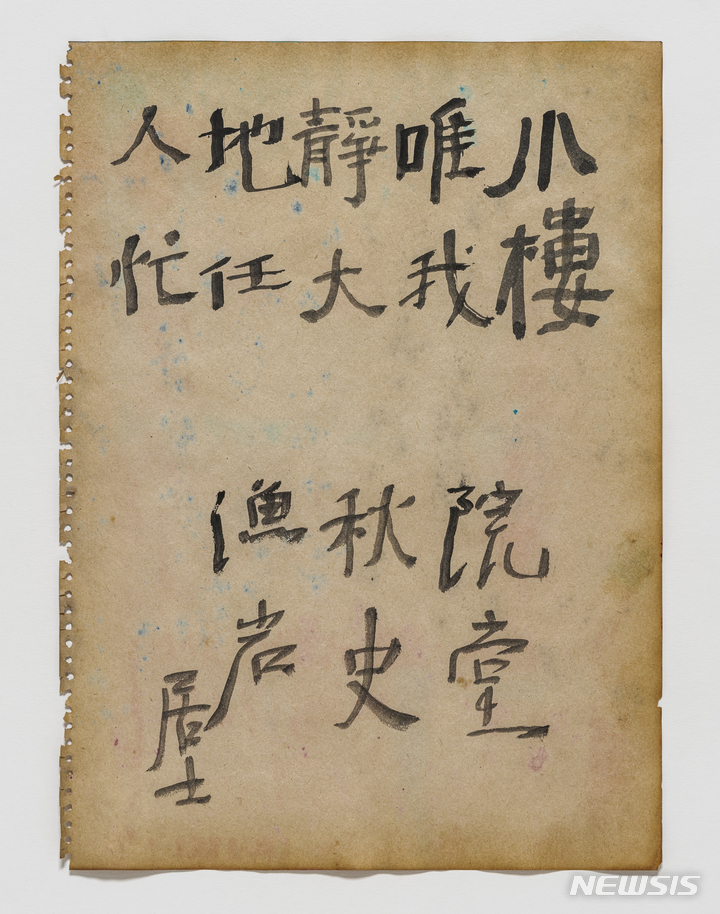 小樓
唯我
靜大
地任
人忙
院堂
秋史
漁岩
居士
NEWSIS